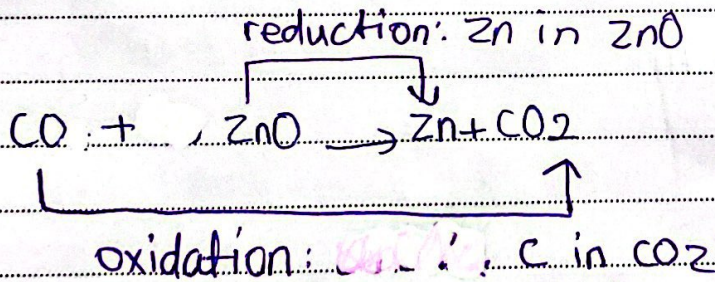 reduction: Zn in ZnO
CO + ZnO → Zn + CO2
oxidation: C in CO2